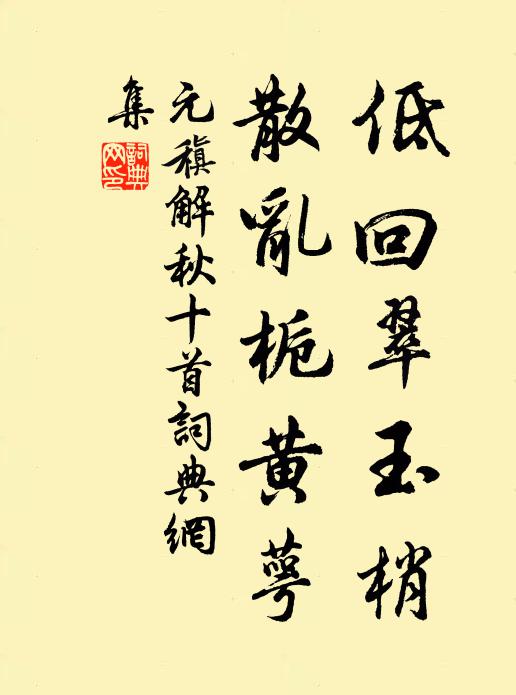 低回翠玉梢
散亂梔黄蕚
元稹解秋十首詞典網
集
詞典網印